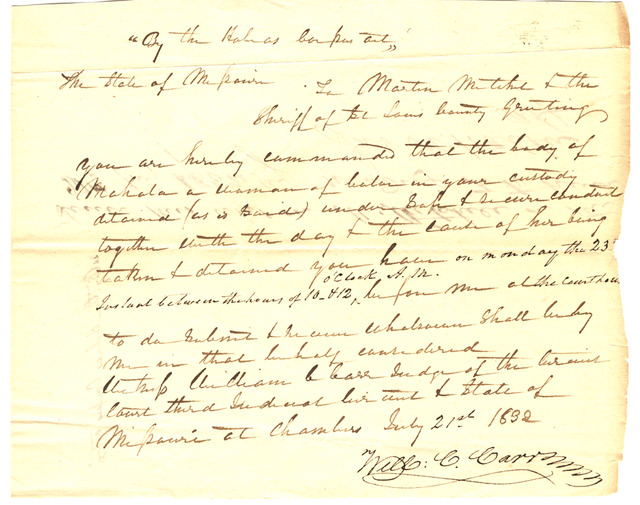 "By the Habeas Corpus act"
The State of Missouri To Martin Mitchel & the
Sheriff of St Louis County Greeting
you are hereby commanded that the body of
Mahala a woman of Color in your custody
detained (as is said) under safe & secure conduct
together with the day & the cause of her being
taken & detained you have on monday the 23d
Instant between the hours of 10 & 12, o'Clock A.M. before me at the court house
to do submit & receive whatsoever shall be by
me in that behalf considered
Witness William C Carr Judge of the Circuit
Court third Judicial Circuit & State of
Missouri at Chambers July 21st 1832
Will: C. Carr